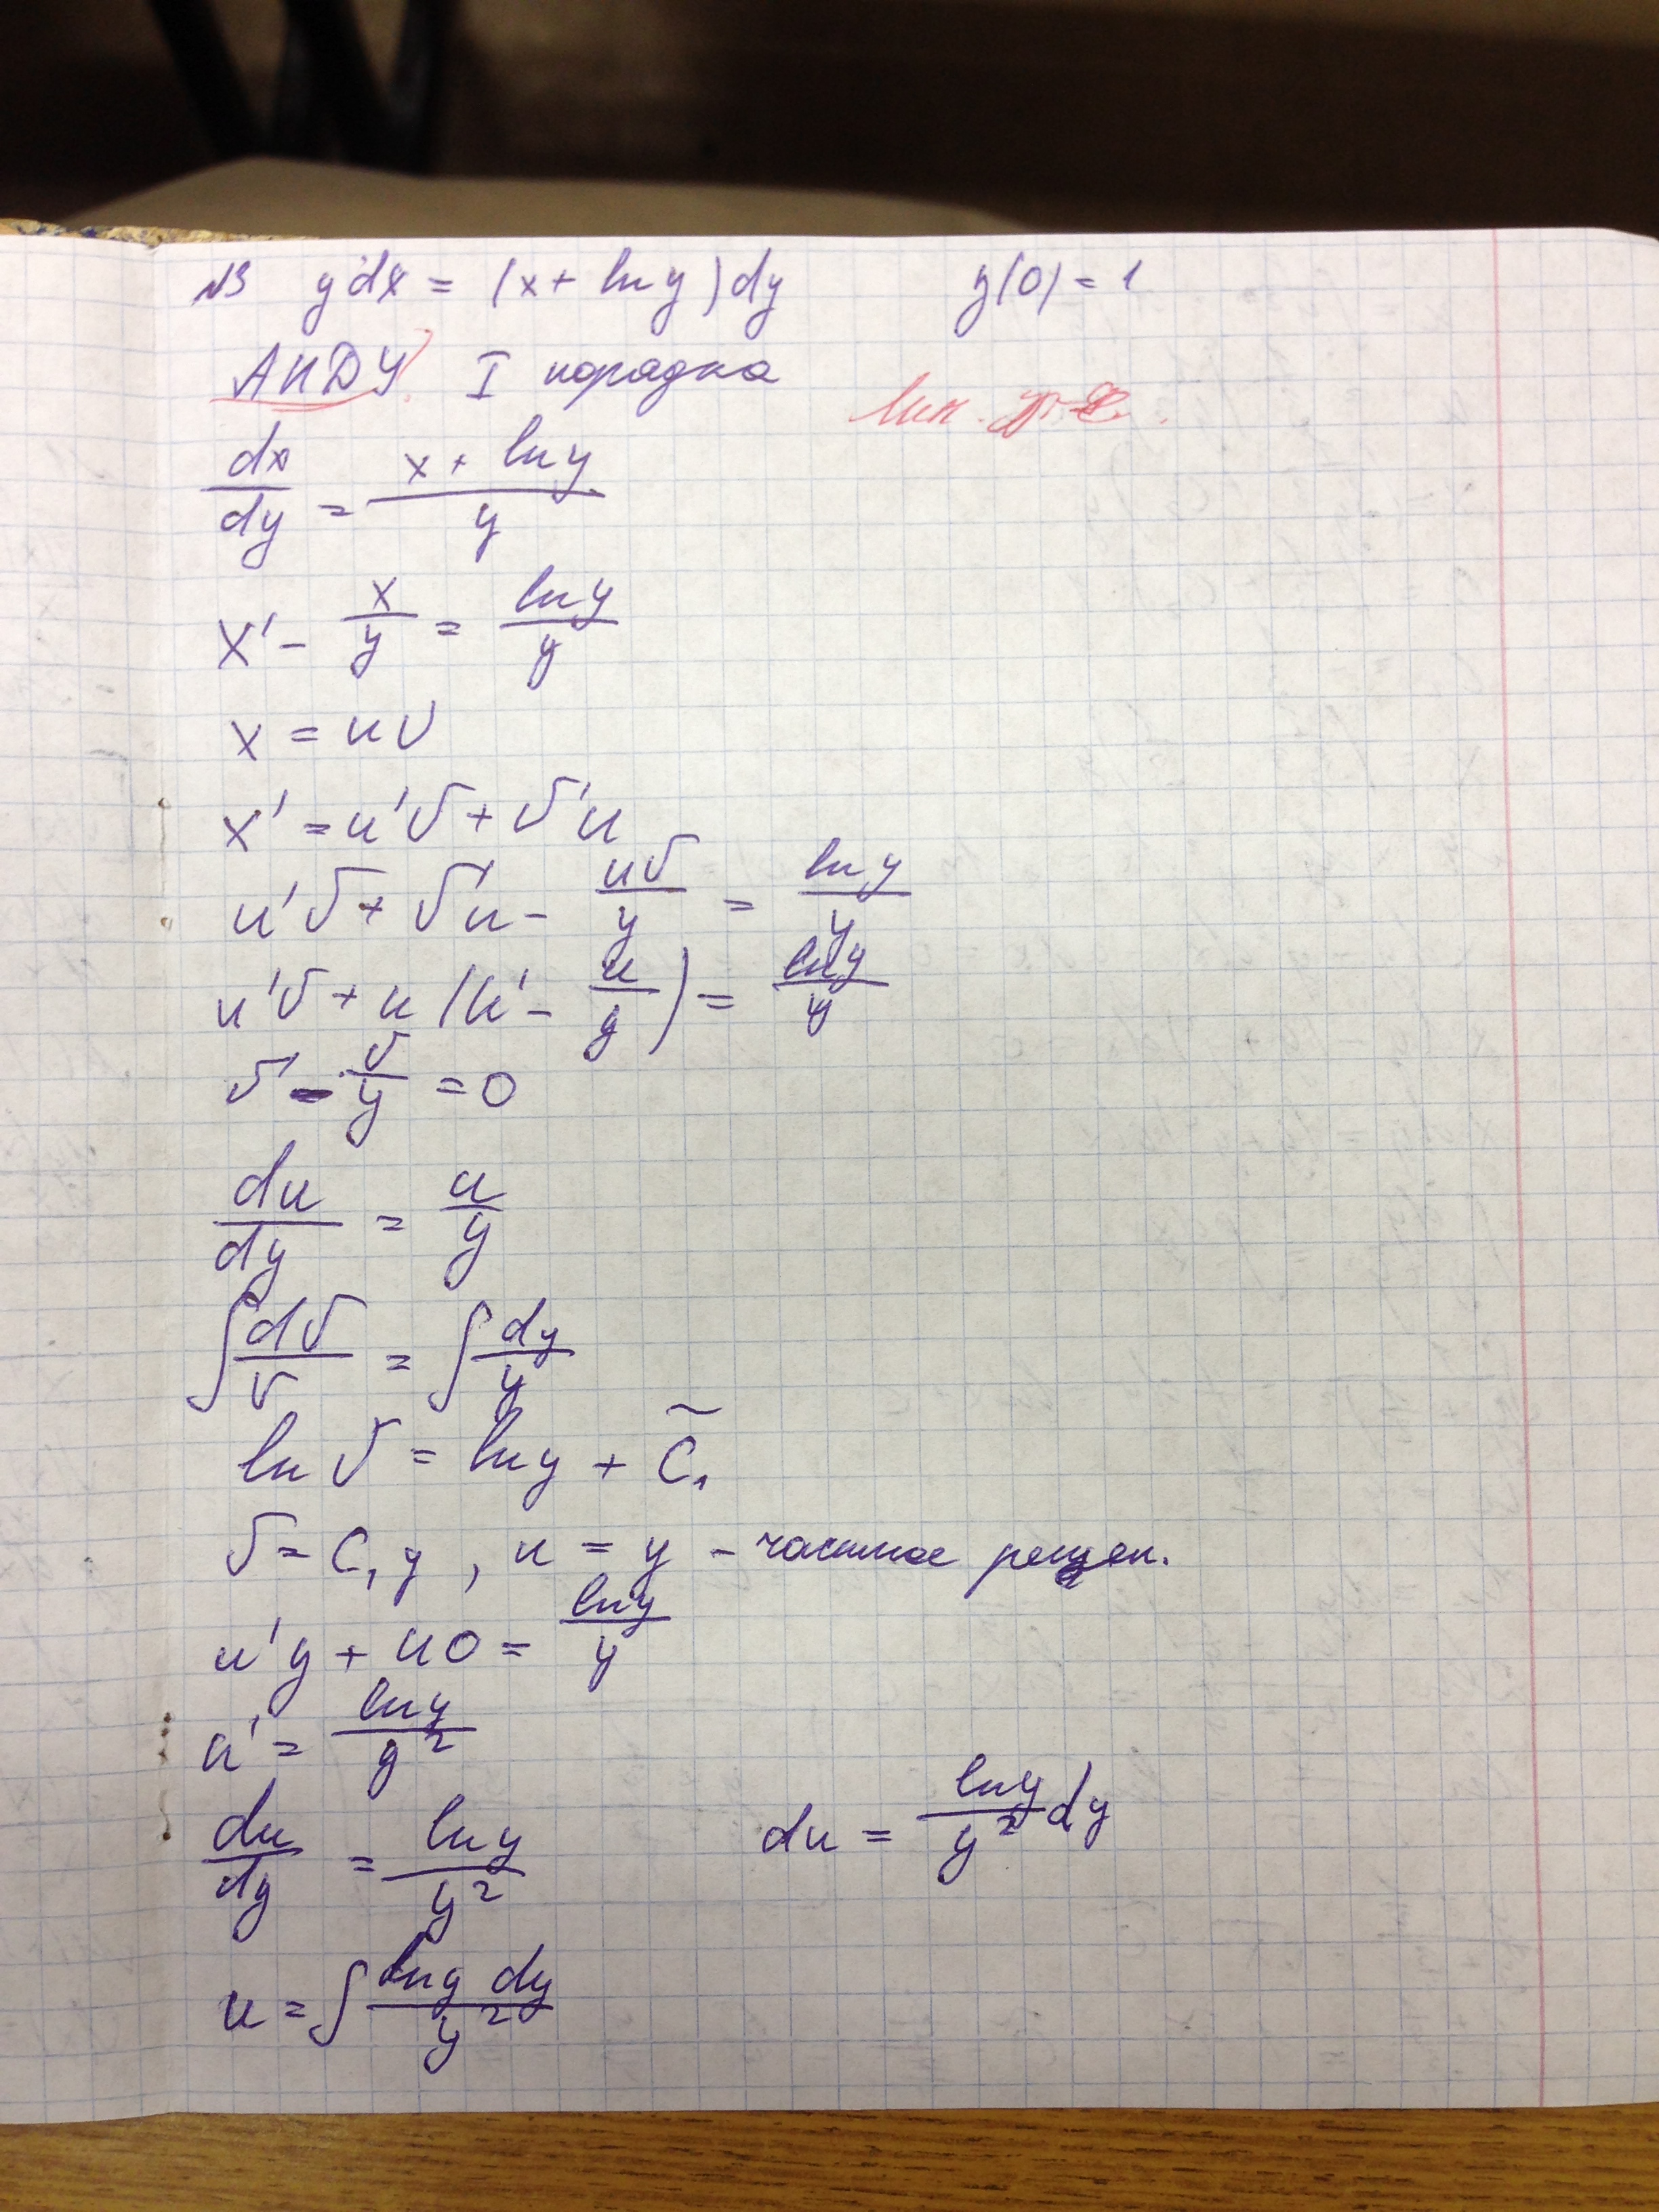 №3 ydx = (x + ln y)dy y(0) = 1
ЛНДУ I порядка
Лин.
dx/dy = (x + ln y)/y
x' - x/y = ln y/y
x = uv
x' = u'v + v'u
u'v + v'u - uv/y = ln y/y
u'v + u(u' - u/y) = ln y/y
v' - v/y = 0
du/dy = u/y
∫dv/v = ∫dy/y
ln v = ln y + C̃₁
v = C₁y, u = y - частное решен.
u'y + u0 = ln y/y
u' = ln y/y²
du/dy = ln y/y² du = ln y/y² dy
u = ∫ln y dy/y²